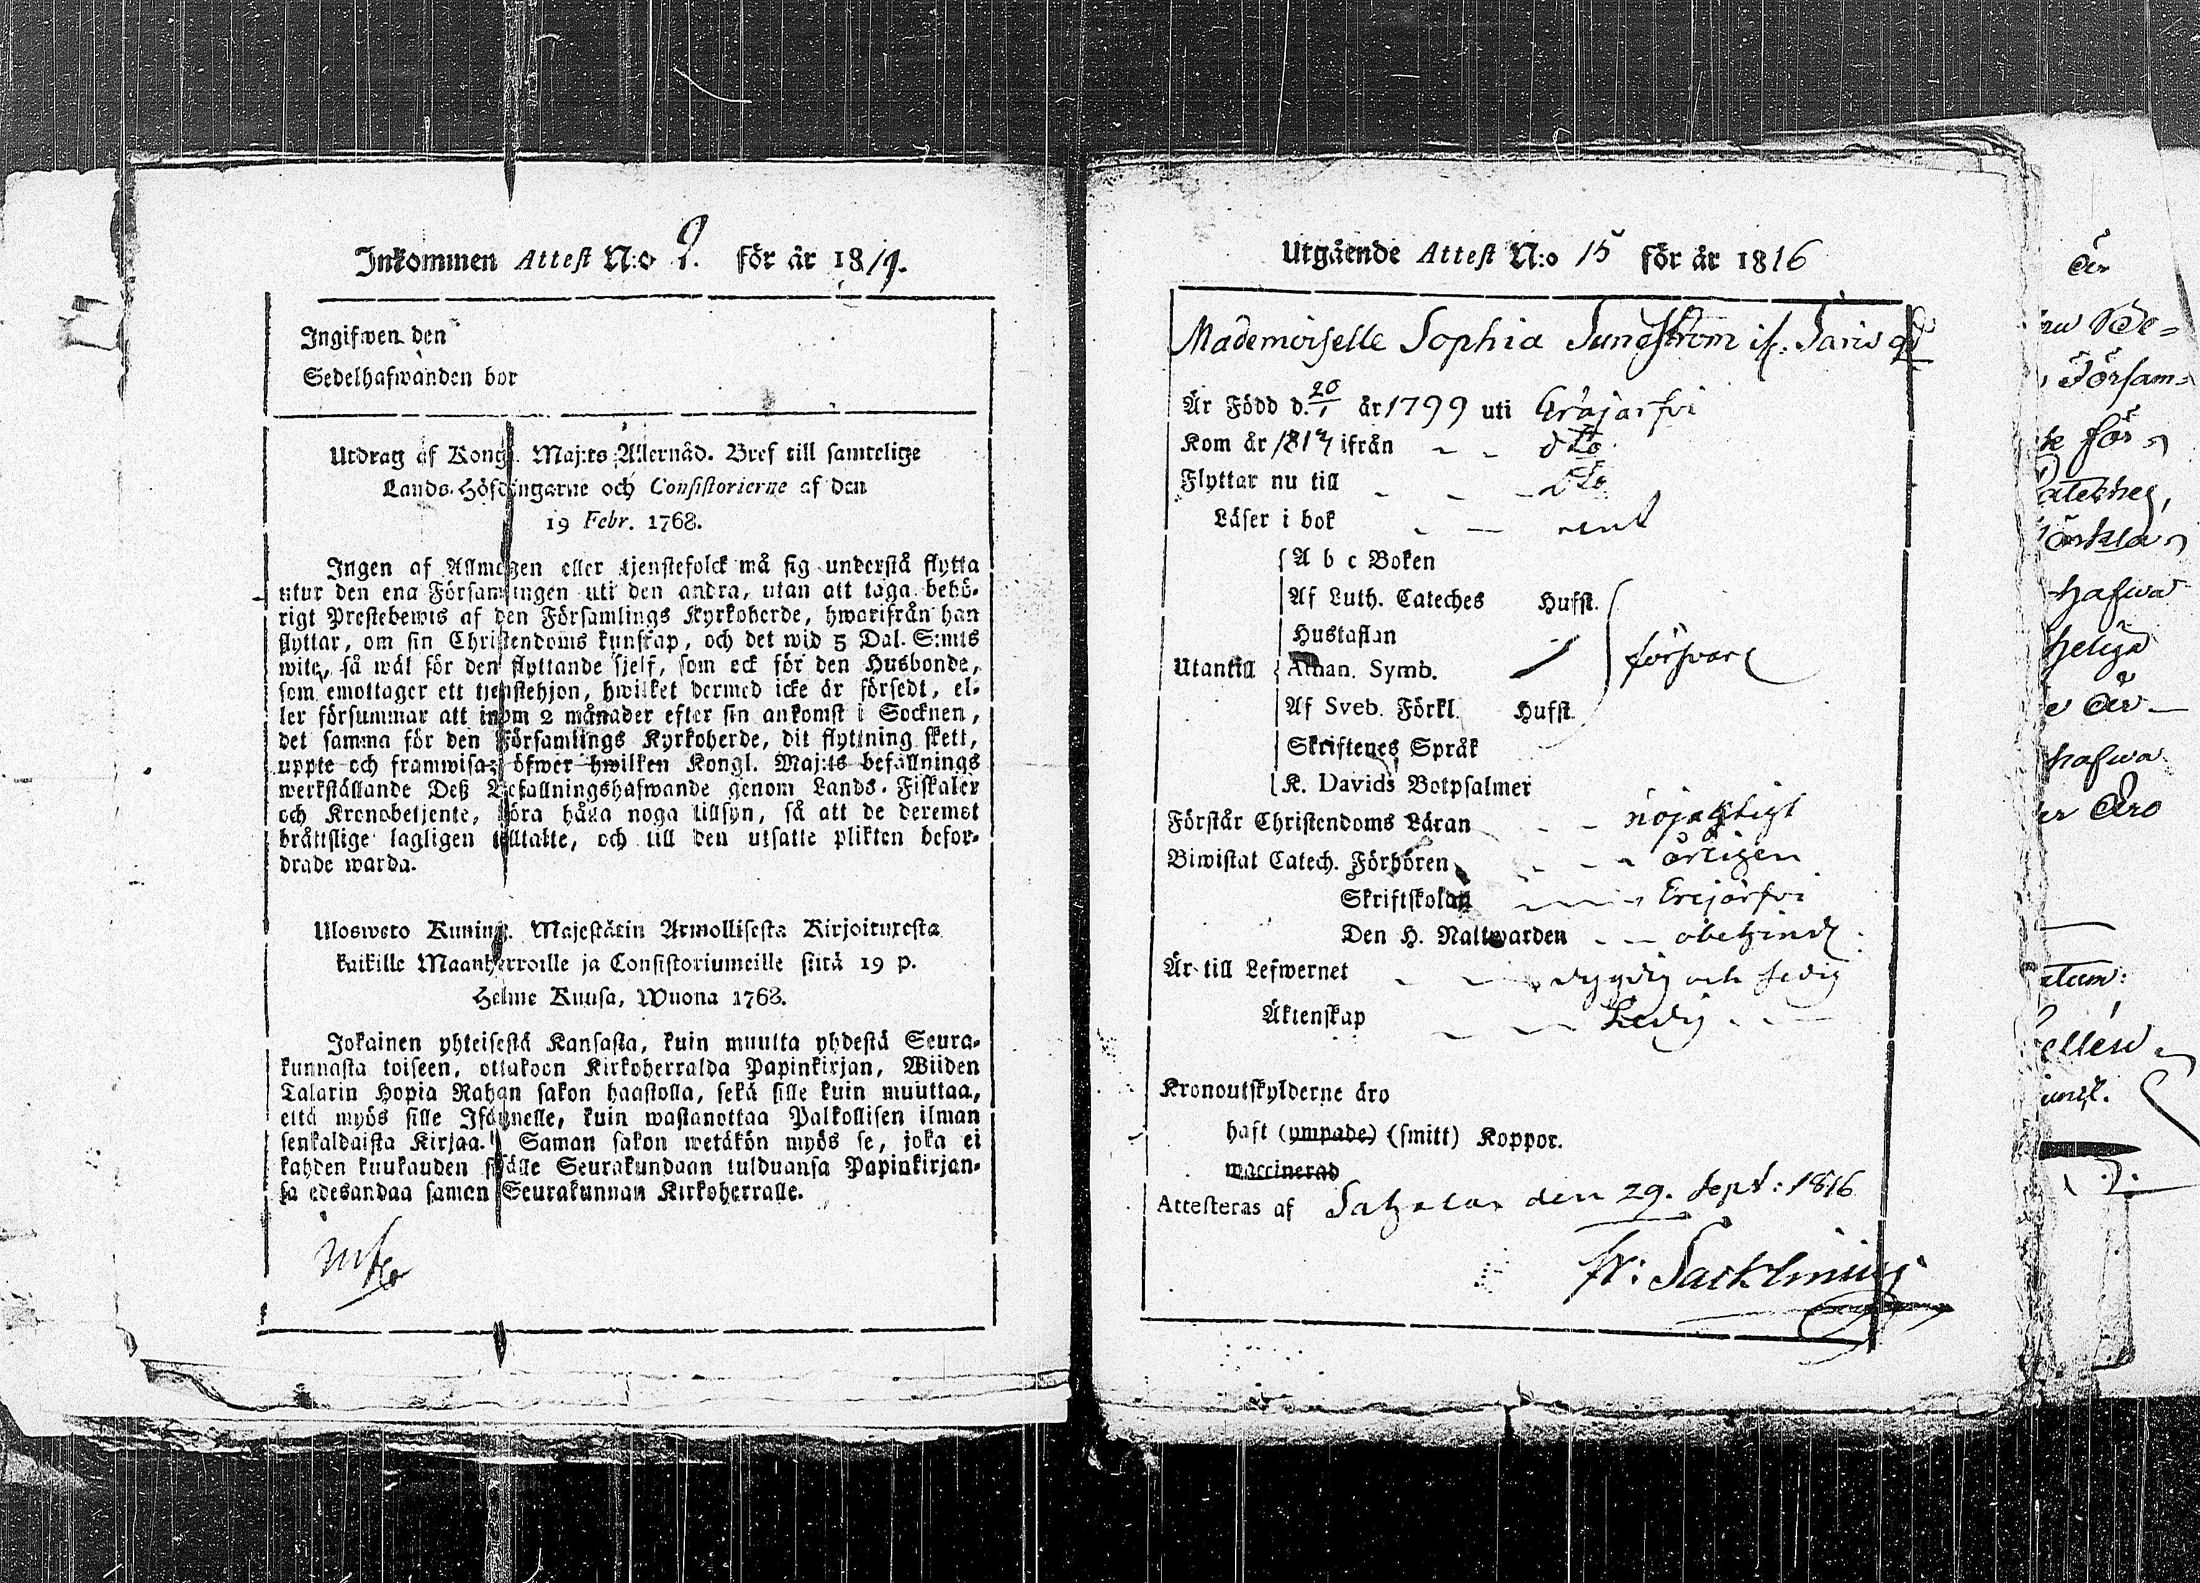 Inkommen Attest N:o 9. för år 1819.
Ingifwen den
Sedelhafwanden bor
Utdrag af Kongl. Maj:ts Allernåd. Bref till samtelige
Lands-Höfdingarne och Consistorierne af den
19 Febr. 1768.
Ingen af Allmogen eller tjenstefolck må sig understå flytta
utur den ena Församlingen uti den andra, utan att taga behö-
rigt Prestebewis af den Församlings Kyrkoherde, hwarifrån han
flyttar, om sin Christendoms kunskap, och det wid 5 Dal. S:mts
wite, så wäl för den flyttande sjelf, som ock för den Husbonde,
som emottager ett tjenstehjon, hwilket dermed icke är försedt, el-
ler försummar att inom 2 månader efter sin ankomst i Socknen,
det samma för den Församlings Kyrkoherde, dit flyttning skett,
uppte och framwisa; öfwer hwilken Kongl. Maj:ts befallnings
werkställande Deß Befallningshafwande genom Lands-Fiskaler
och Kronobetjente, böra hålla noga tillsyn, så att de deremot
bråttslige lagligen tilltalte, och till den utsatte plikten befor-
drade warda.
Ulosweto Kuning. Majestätin Armollisesta Kirjoituxesta
kaikille Maanherroille ja Consistoriumeille siitä 19 p.
Helme Kuusa, Wuona 1768.
Jokainen yhteisestä Kansasta, kuin muutta yhdestä Seura-
kunnasta toiseen, ottakoon Kirkoherralda Papinkirjan, Wiiden
Talarin Hopia Rahan sakon haastolla, sekä sille kuin muuttaa,
että myös sille Isännelle, kuin wastanottaa Palkollisen ilman
senkaldaista Kirjaa. Saman sakon wetäkön myös se, joka ei
kahden kuukauden sisälle Seurakundaan tulduansa Papinkirjan-
sa edesandaa saman Seurakunnan Kirkoherralle.
Utgående Attest N:o 15 för år 1816
Mademoiselle Sophia Sundström if. Saris gd
Är Född d. 20/1 år 1799 uti Eräjärfvi
Kom år 1814 ifrån - - dto
Flyttar nu till - - - dto
Läser i bok - - rent
A b c Boken
Af Luth. Cateches Hufst.
Hustaflan
Utantill Athan. Symb. försvarl
Af Sveb. Förkl. Hufst.
Skriftenes Språk
K. Davids Botpsalmer
Förstår Christendoms Läran - - nöjagtigt
Biwistat Catech. Förhören - - - årligen
Skriftskolan - - - Erejärfvi
Den H. Nattwarden - - obehindr.
Är till Lefwernet - - - dygdig och sedig
Äktenskap - - - Ledig - -
Kronoutskylderne äro
haft (ympade) (smitt) Koppor.
waccinerad
Attesteras af Sahalax den 29. Sept: 1816
för
hafwa
heliga
hafwa